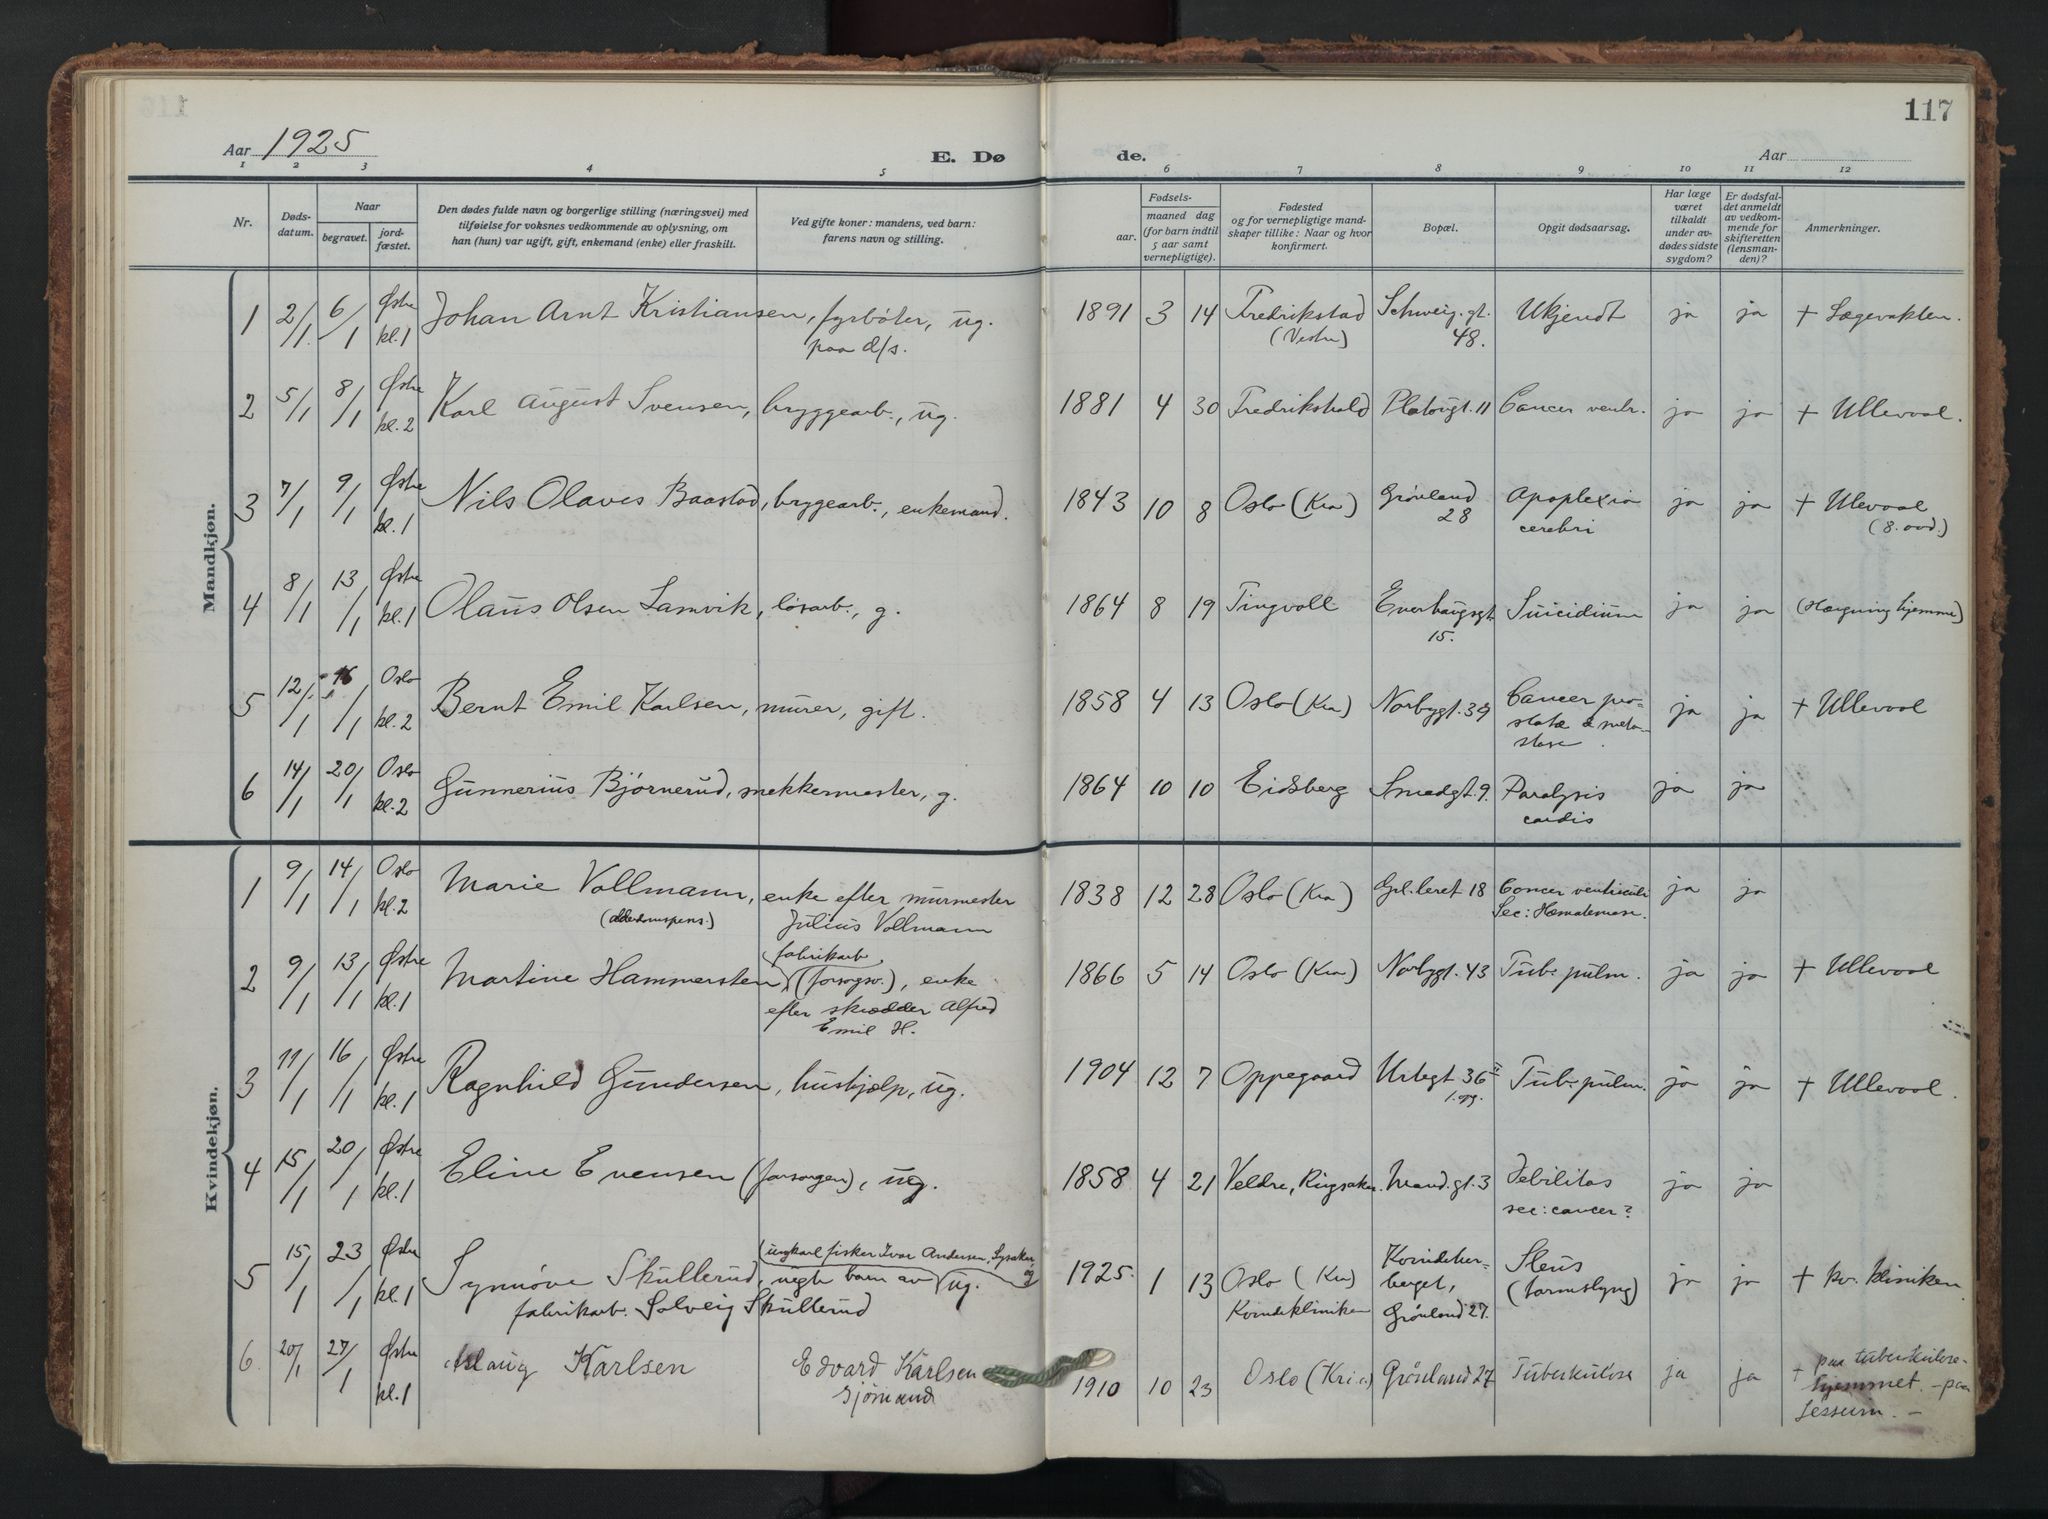 117
Aar 1925
E. Dø
de.
Aar
1 2 3 4 5 6 7 8 9 10 11 12
Nr.
Døds-
datum.
Naar
begravet.
jord-
fæstet.
Den dødes fulde navn og borgerlige stilling (næringsvei) med
tilføielse for voksnes vedkommende av oplysning, om
han (hun) var ugift, gift, enkemand (enke) eller fraskilt.
Ved gifte koner: mandens, ved barn:
farens navn og stilling.
Fødsels-
aar.
maaned dag
(for barn indtil
5 aar samt
vernepligtige).
Fødested
og for vernepligtige mand-
skaper tillike: Naar og hvor
konfirmert.
Bopæl.
Opgit dødsaarsag.
Har læge
været
tilkaldt
under av-
dødes sidste
sygdom?
Er dødsfal-
det anmeldt
av vedkom-
mende for
skifteretten
(lensman-
den)?
Anmerkninger.
Mandkjøn.
1 2/1 6/1 Østre kl. 1 Johan Arnt Kristiansen, fyrbøter, ug. 1891 3 14 Fredrikstad Schweig.gt. Ukjendt ja ja + Lægevakten.
paa d/s. (Vestre) 48.
2 5/1 8/1 Østre kl. 2 Karl August Svensen, bryggearb., ug. 1881 4 30 Fredrikshald Platougt. 11 Cancer ventr. ja ja + Ullevaal.
3 7/1 9/1 Østre kl. 1 Nils Olaves Baastad, bryggearb., enkemand. 1843 10 8 Oslo (Kra) Grønland Apoplexia ja ja + Ulevaal
28 cerebri (8. avd.)
4 8/1 13/1 Østre kl. 1 Olaus Olsen Samvik, løsarb., g. 1864 8 19 Tingvoll Enerhaugsgt. Suicidium ja ja (Hængning hjemme)
15.
5 12/1 16/1 Oslo kl. 2 Bernt Emil Karlsen, murer, gift. 1858 4 13 Oslo (Kra) Norbygt. 39 Cancer pro- ja ja + Ullevaal
statæ & meta-
stase.
6 14/1 20/1 Oslo kl. 2 Gunnerius Bjørnerud, snekkermester, g. 1864 10 10 Eidsberg Smedgt. 9. Paralysis ja ja
cordis
Kvindekjøn.
1 9/1 14/1 Oslo kl. 2 Marie Vollmann, enke efter murmester 1838 12 28 Oslo (Kra) Grl. leret 18 Cancer ventriculi ja ja
(alderdomspens.) Julius Vollmann Sec: Hæmatemese.
2 9/1 13/1 Østre kl. 1 Martine Hammersten, fabrikarb. (forsorgsv.), enke 1866 5 14 Oslo (Kra) Norbygt. 43 Tub. pulm. ja ja + Ullevaal
efter skrædder Alfred
Emil H.
3 11/1 16/1 Østre kl. 1 Ragnhild Gundersen, hushjælp, ug. 1904 12 7 Oppegaard Urtegt 36 II Tub. pulm. ja ja + Ullevaal.
1. opg.
4 15/1 20/1 Østre kl. 1 Eline Evensen (forsorgen), ug. 1858 4 21 Veldre, Ringsaker. Mand.gt. 3 Debilitas ja ja
sec: cancer?
5 15/1 23/1 Østre kl. 1 Synnøve Skullerud, uegte barn av (ungkarl fisker Ivar Andersen, Lysaker, og ug. 1925. 1 13 Oslo (Kra) Kvindeher- Ileus ja ja + kv. kliniken
fabrikarb. Solveig Skullerud Kvindekliniken berget, (tarmslyng)
Grønland 27.
6. 20/1 27/1 Østre kl. 1 Aslaug Karlsen Edvard Karlsen 1910 10 23 Oslo (Kria) Grønland 27 Tuberkulose ja ja + paa tuberkulose-
sjømand hjemmet. – paa
Jessum. –